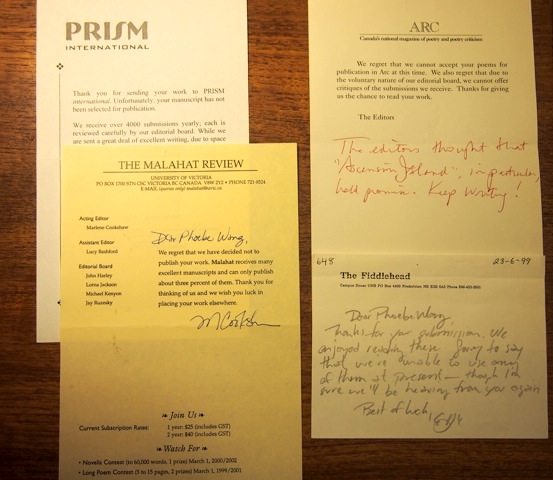 PRISM
INTERNATIONAL
Thank you for sending your work to PRISM
international. Unfortunately, your manuscript has not
been selected for publication.
We receive over 4000 submissions yearly; each is
reviewed carefully by our editorial board. While we
are sent a great deal of excellent writing, due to space
THE MALAHAT REVIEW
UNIVERSITY OF VICTORIA
PO BOX 1700 STN CSC VICTORIA BC CANADA V8W 2Y2 • PHONE 721-8524
E-MAIL (queries only) malahat@uvic.ca
Acting Editor
Marlene Cookshaw
Assistant Editor
Lucy Bashford
Editorial Board
John Harley
Lorna Jackson
Michael Kenyon
Jay Ruzesky
Dear Phoebe Wang,
We regret that we have decided not to
publish your work. Malahat receives many
excellent manuscripts and can only publish
about three percent of them. Thank you for
thinking of us and we wish you luck in
placing your work elsewhere.
M Cooksh
Join Us
Current Subscription Rates:
1 year: $25 (includes GST)
2 year: $40 (includes GST)
Watch For
• Novella Contest (to 60,000 words, 1 prize) March 1, 2000/2002
• Long Poem Contest (5 to 15 pages, 2 prizes) March 1, 1999/2001
ARC
Canada's national magazine of poetry and poetry criticism
We regret that we cannot accept your poems for
publication in Arc at this time. We also regret that due to the
voluntary nature of our editorial board, we cannot offer
critiques of the submissions we receive. Thanks for giving
us the chance to read your work.
The Editors
The editors thought that
"Ascension Island", in particular,
held promise. Keep writing!
648
23-6-99
The Fiddlehead
Campus House UNB PO Box 4400 Fredericton NB E3B 5A3 Phone 506-453-3501
Dear Phoebe Wang,
Thanks for your submission. We
enjoyed reading these. Sorry to say
that we're unable to use any
of them at present — though I'm
sure we'll be hearing from you again
Best of luck,